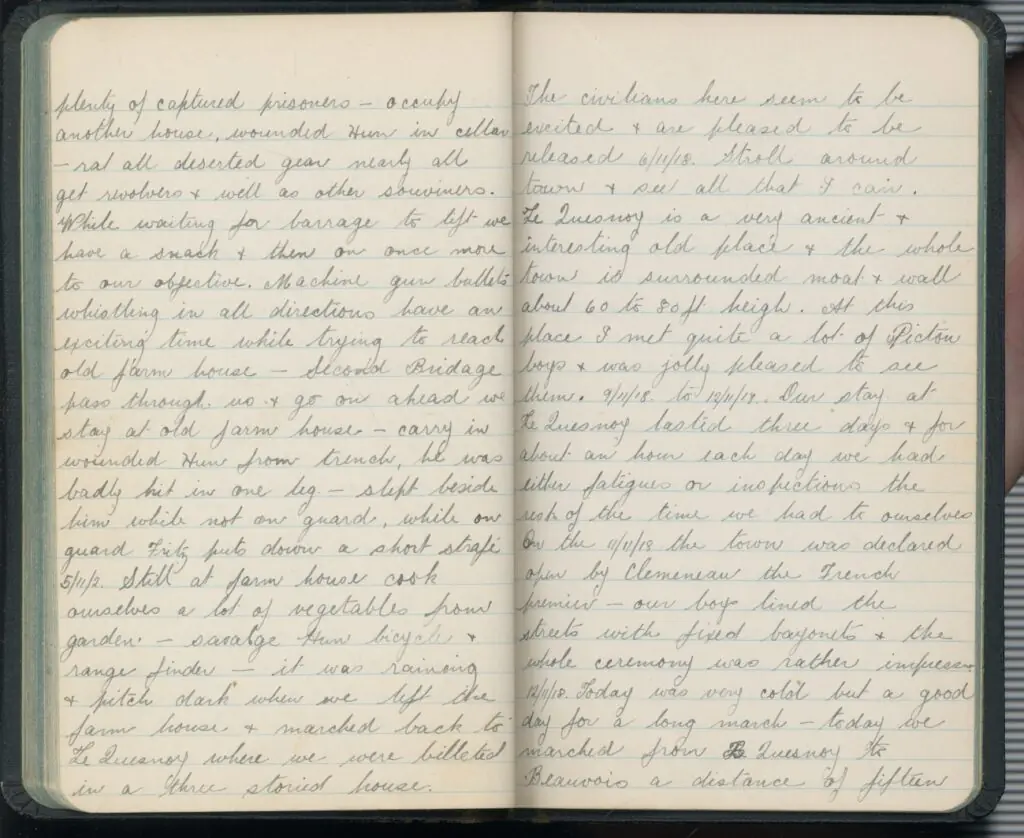 plenty of captured prisoners – occupy
another house, wounded Hun in cellar
– rat all deserted gear nearly all
get revolvers & well as other souviners.
While waiting for barrage to lift we
have a snack & then on once more
to our objective. Machine gun bullets
whistling in all directions have an
exciting time while trying to reach
old farm house – Second Bridage
pass through us & go on ahead we
stay at old farm house – carry in
wounded Hun from trench, he was
badly hit in one leg – slept beside
him while not on guard, while on
guard Fritz puts down a short strafe
5/11/2. Still at farm house cook
ourselves a lot of vegetables from
garden – savalge Hun bicycle &
range finder – it was raining
& pitch dark when we left the
farm house & marched back to
Le Quesnoy where we were billeted
in a three storied house.
The civilians here seem to be
excited & are pleased to be
released 6/11/18. Stroll around
town & see all that I can.
Le Quesnoy is a very ancient &
interesting old place & the whole
town is surrounded moat & wall
about 60 to 80 ft heigh. At this
place I met quite a lot of Picton
boys & was jolly pleased to see
them. 9/11/18. to 12/11/18. Our stay at
Le Quesnoy lasted three days & for
about an hour each day we had
either fatigues or inspections the
rest of the time we had to ourselves
On the 11/11/18 the town was declared
open by Clemeneau the French
premier – our boys lined the
streets with fixed bayonets & the
whole ceremony was rather
12/11/18. Today was very cold but a good
day for a long march – today we
marched from Le Quesnoy to
Beauvois a distance of fifteen